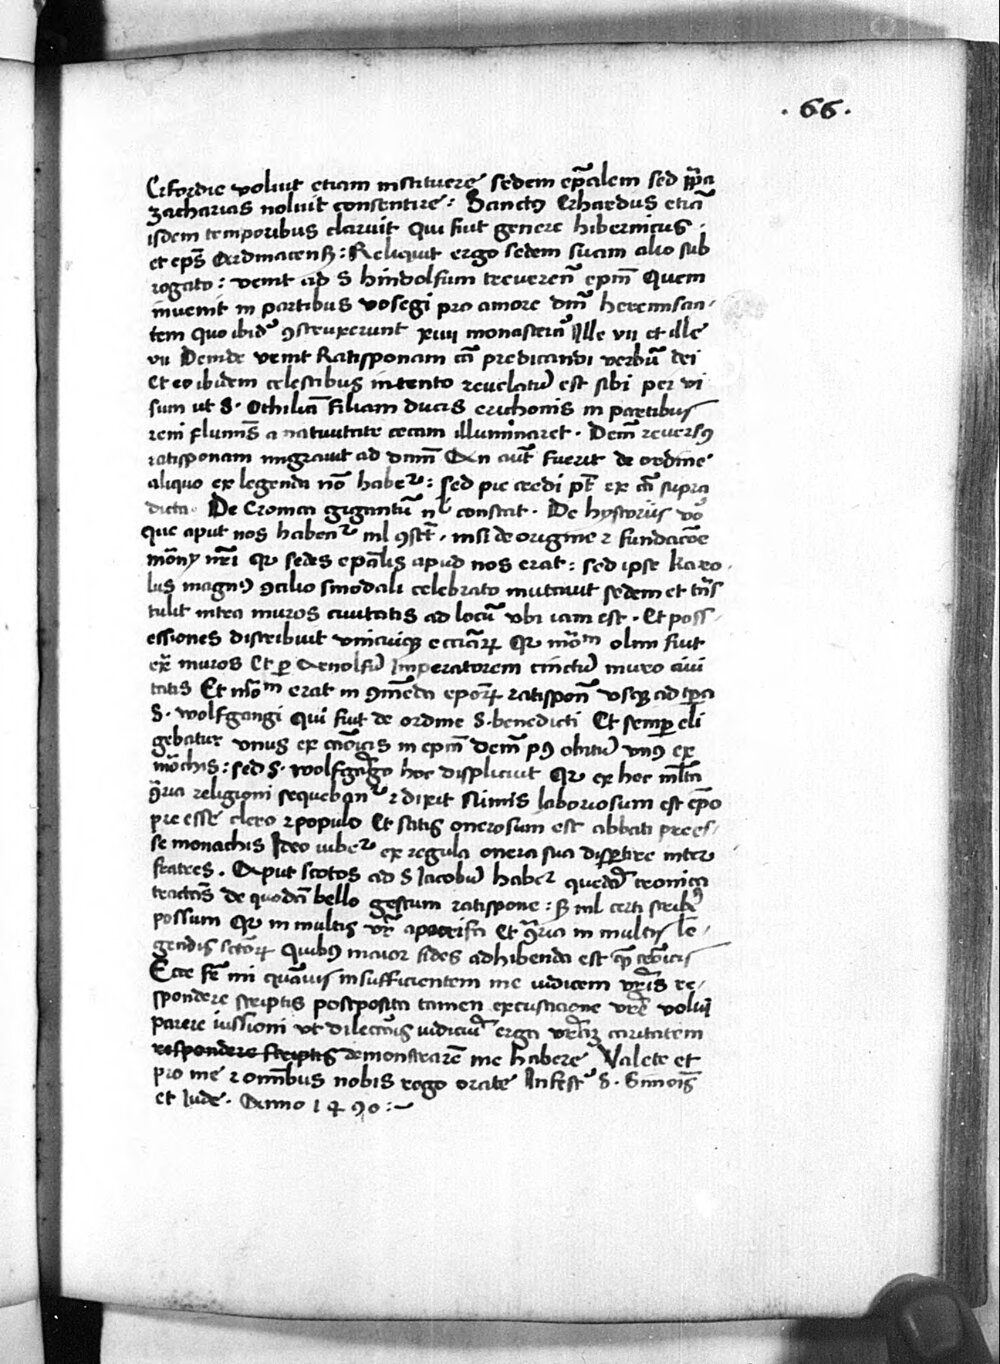 . 66 .
Erfordie voluit etiam instituere sedem ep̄alem sed pp̄a
zacharias noluit consentire : Sanctꝰ Erhardus etiā
isdem temporibus claruit qui fuit genere hibernicus .
et ep̄s Ardmacensꝫ : Reliquit ergo sedem suam alio sub
rogato : venit ad S hindolfum treverenᷤ epm̄ Quem
invenit in partibus vosegi pro amore dnī heremisan-
tem quo ibidꝰ ꝯstruxerunt xiiii monasteria Ille vii et ille
vii Deinde venit Ratisponam cā predicandi verbū dei
Et eo ibidem celestibus intento revelatū est sibi per vi
sum ut S. Othiliā filiam ducis erichonis in partibus
reni fluminis a nativitate cecam illuminaret . Demū reversꝰ
ratisponam migravit ad dnm̄ An aūt fuerit de ordine
aliquo ex legenda nō habeᷣ : sed pie credi pt̄ ex cā supra
dicta . De Croma gigantū nͥ constat . De hystoriis vō
que aput nos habenᷣ nl ꝯstt̄ . nisi de origine ⁊ fundacōe
mōnȳ nr̄i Qꝛ sedes epālis apud nos erat : sed ipse karo-
lus magnꝰ ꝯcilio sinodali celebrato mutavit sedem et tn̄s
tulit intra muros civitatis ad locū vbi iam est . Et poss-
essiones distribuit vnicuiqꝫ ecciāꝝ Qꝛ mōᵐ olim fuit
ex̄ muros Et ꝑ Arnolfū Imperatorem cinctū muro civi
tatis Et nr̄oᵐ erat in ꝯmēda eporꝝ ratisponᷤ vsqꝫ ad tꝑa
S. wolfgangi qui fuit de ordine S. benedicti Et semꝑ eli
gebatur vnus ex cnōicis in epm̄ Demū pꝰ obitū vnꝰ ex
mōchis : sed S. wolfgāgo hoc displicuit Qꝛ ex hoc ml̄ta
ꝯ̄ria religioni sequebanᷣ ⁊ dixit Nimis laboriosum est epō
pre esse clero ⁊ populo Et satis onerosum est abbati prees-
se monachis Ideo iubeᷣ ex regula onera sua disꝑtire inter
fratres . Aput scotos ad S Iacobū habeᷣ quedā cronica
tractās de quodā bello gestum ratispone : sꝫ nl certi scribē
possum Qꝛ in multis vr̄ apocrifa Et ꝯ̄ria in multis le-
gendis sctōꝝ Quibꝰ maior fides adhibenda est q̄ꝫ crōicis
Ecce fr̄ mi quāvis insufficientem me iudicem vr̄is re-
spondere scriptis postposita tamen excusacione vr̄e volui
parere iussioni vt dilectōnis iudiciū erga vr̄āqꝫ caritatem
respondere scriptis demonstrarē me habere Valete et
pro me ⁊ omībus nobis rogo orate In festꝰ S. Simōis
et Iude . Anno 1490 :~